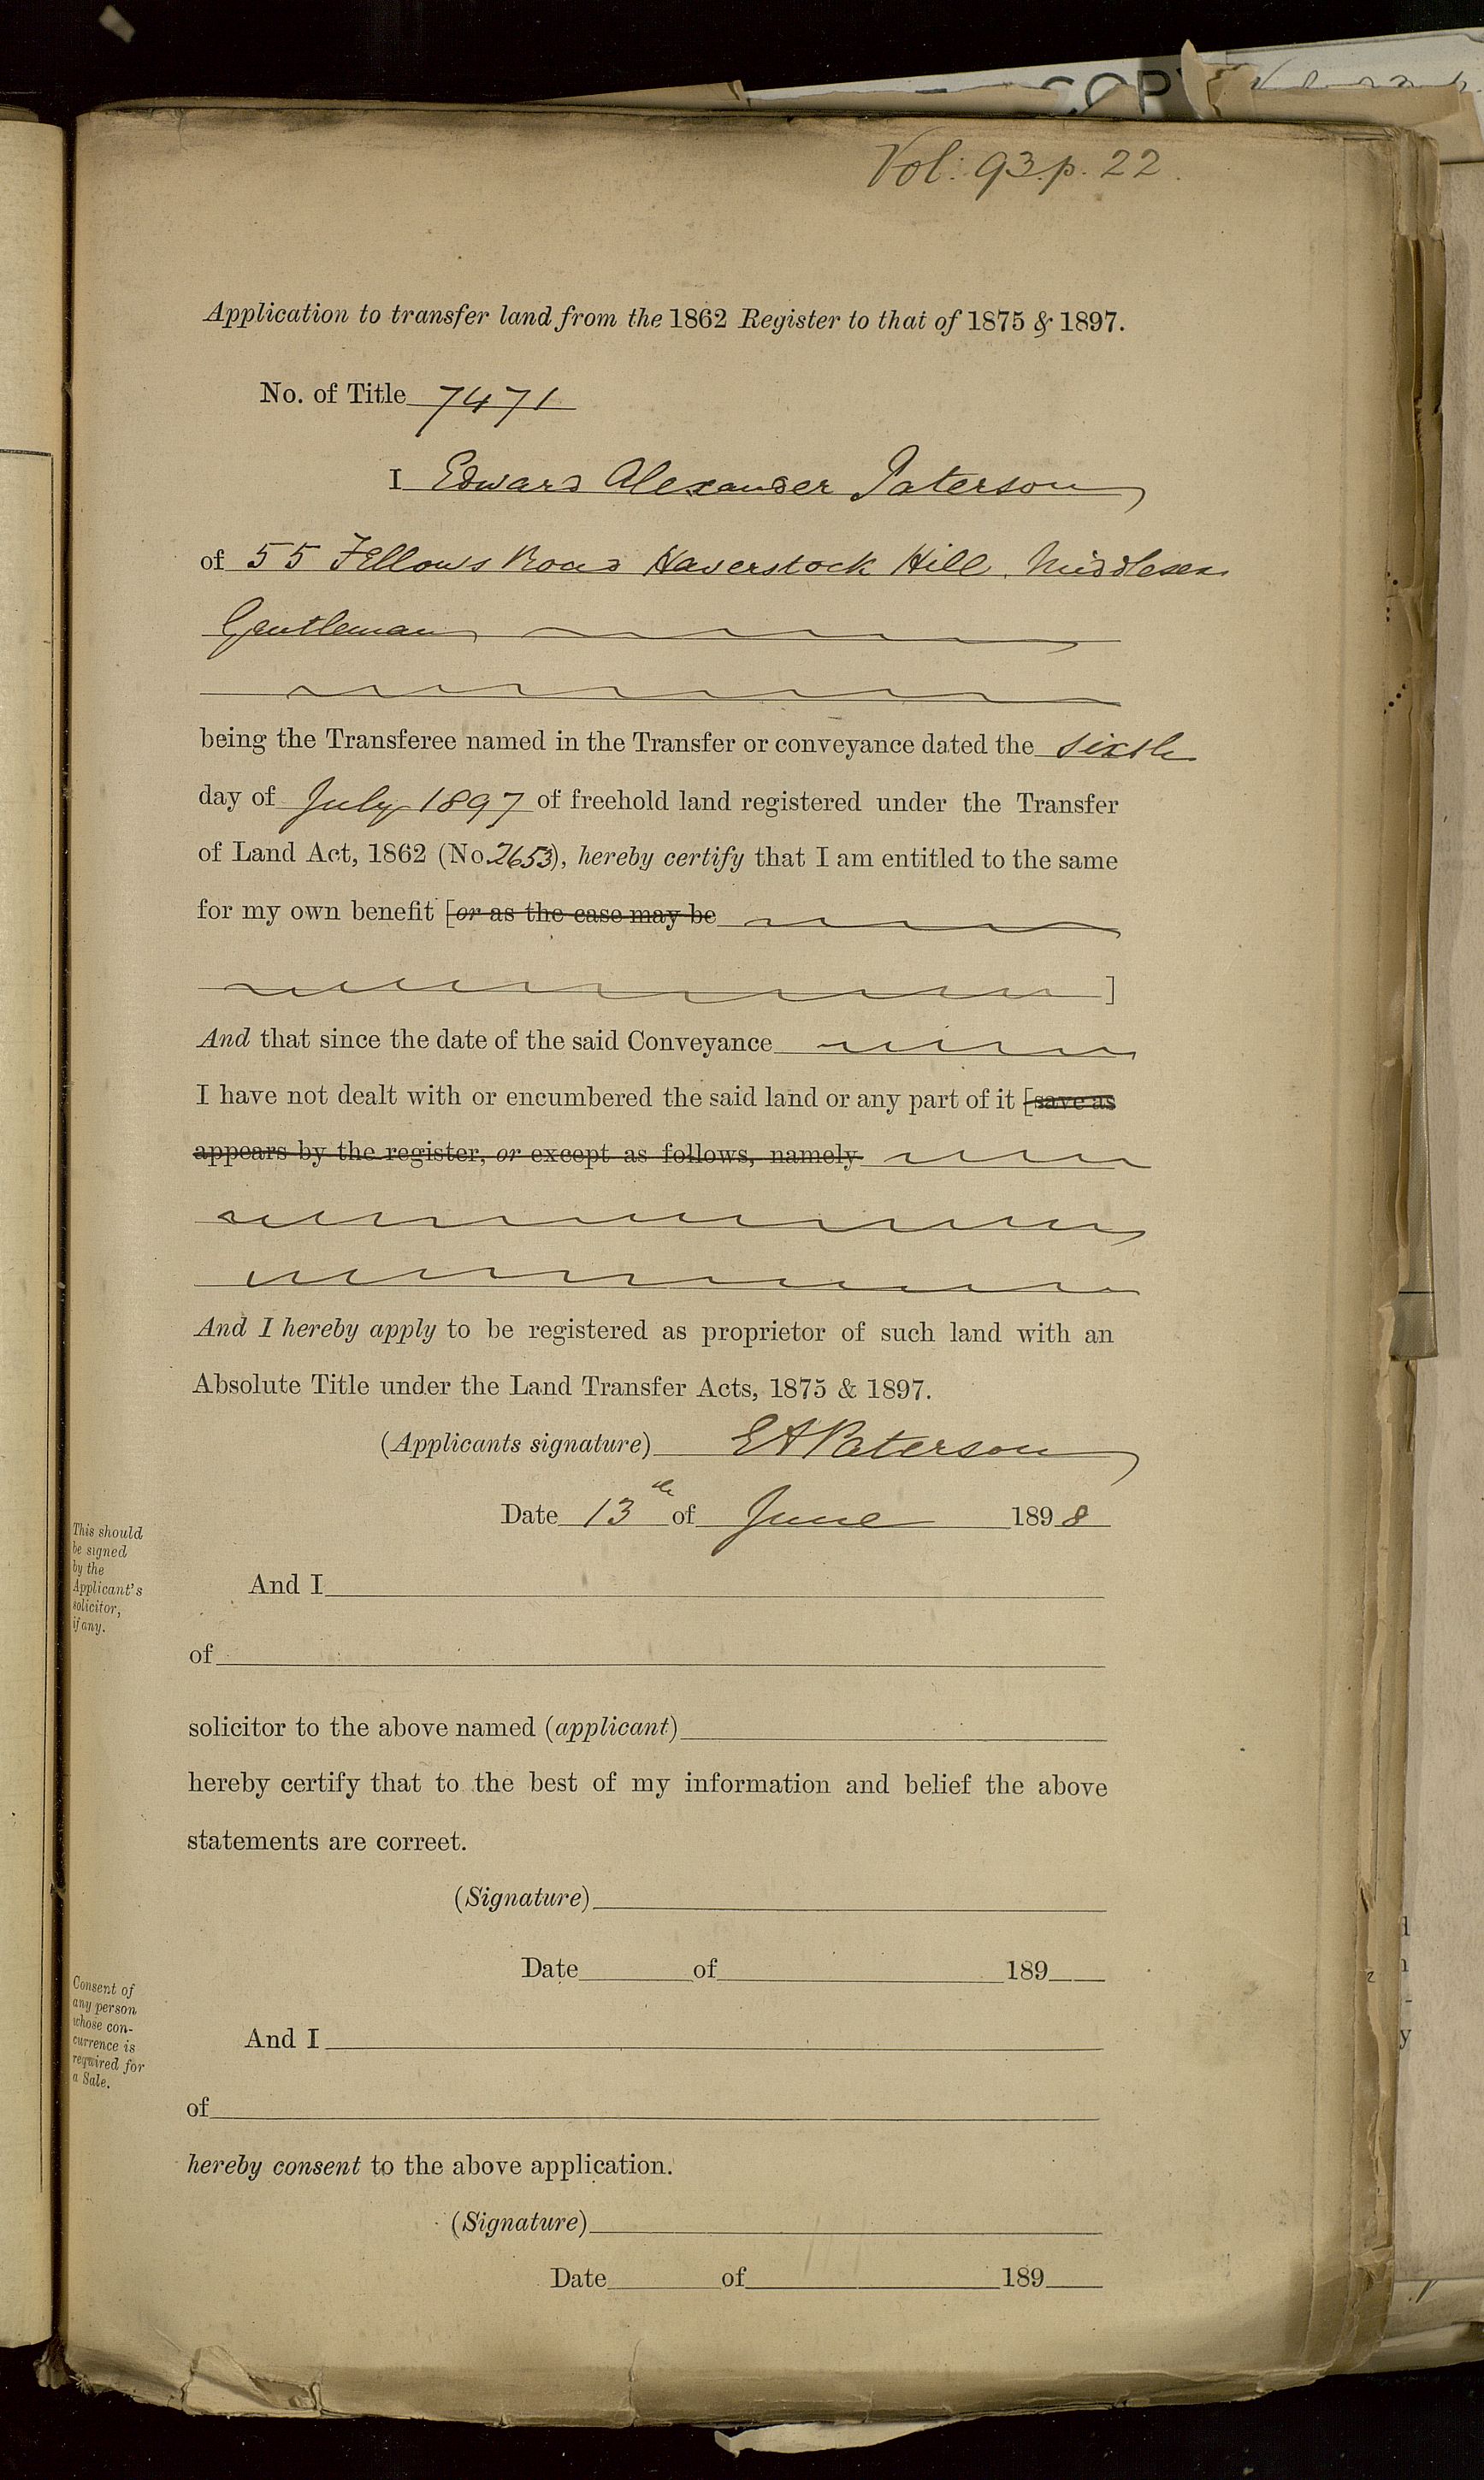 COP
Vol: 93. p. 22.
Application to transfer land from the 1862 Register to that of 1875 & 1897.
No. of Title 7471
I Edward Alexander Paterson
of 55 Fellows Road Haverstock Hill. Middlesex
Gentleman
being the Transferee named in the Transfer or conveyance dated the sixth
day of July 1897 of freehold land registered under the Transfer
of Land Act, 1862 (No. 2653), hereby certify that I am entitled to the same
for my own benefit [or as the case may be
]
And that since the date of the said Conveyance
I have not dealt with or encumbered the said land or any part of it [save as
appears by the register, or except as follows, namely
And I hereby apply to be registered as proprietor of such land with an
Absolute Title under the Land Transfer Acts, 1875 & 1897.
(Applicants signature) E A Paterson
Date 13th of June 1898
This should
be signed
by the
Applicant's
solicitor,
if any.
And I
of
solicitor to the above named (applicant)
hereby certify that to the best of my information and belief the above
statements are correct.
(Signature)
Date of 189
Consent of
any person
whose con-
currence is
required for
a Sale.
And I
of
hereby consent to the above application.
(Signature)
Date of 189